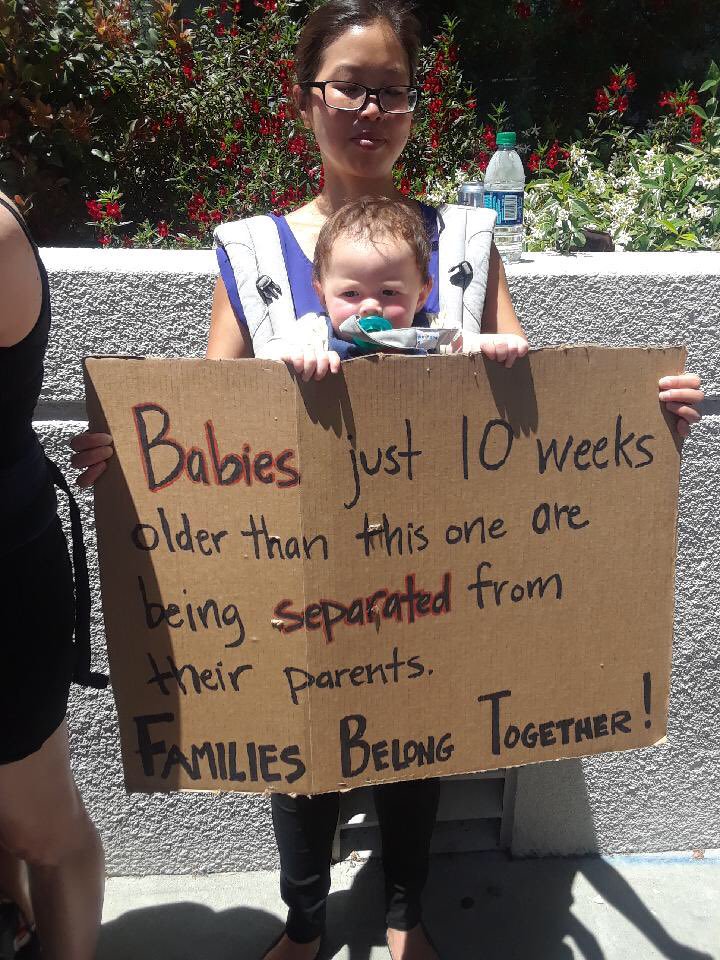 Babies just 10 weeks
older than this one are
being separated from
their parents.
FAMILIES BELONG TOGETHER!